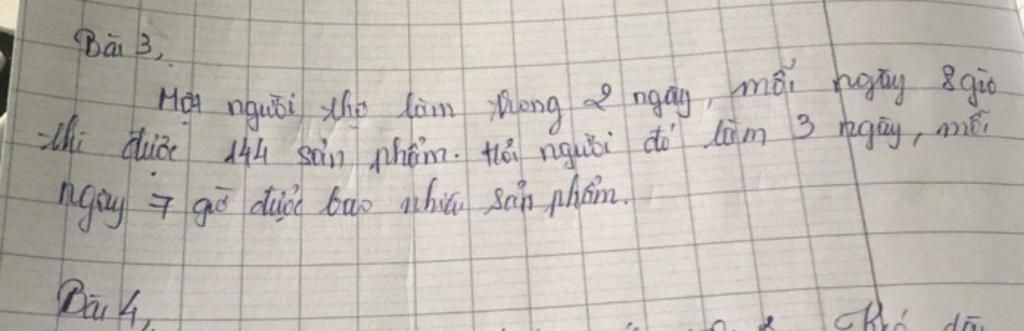 Bài 3,
Một người thợ làm trong 2 ngày, mỗi ngày 8 giờ
thì được 144 sản phẩm. Hỏi người đó làm 3 ngày, mỗi
ngày 7 giờ được bao nhiêu sản phẩm.
Bài 4,